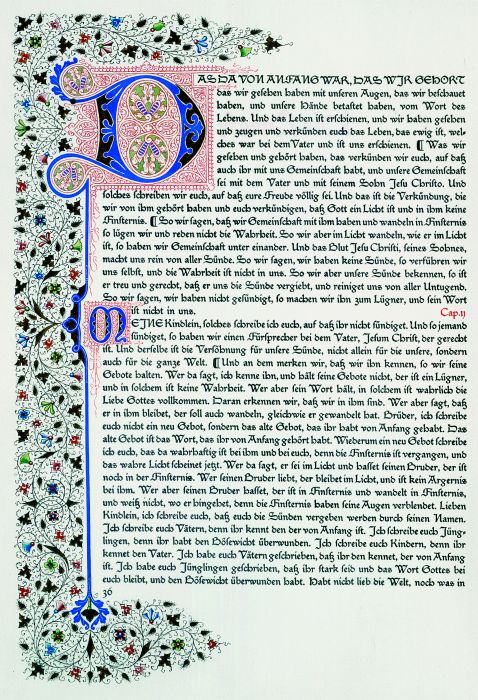 DAS DA VON ANFANG WAR, DAS WJR GEHÖRT
das wir gesehen haben mit unseren Augen, das wir beschauet
haben, und unsere Hände betastet haben, vom Wort des
Lebens. Und das Leben ist erschienen, und wir haben gesehen
und zeugen und verkünden euch das Leben, das ewig ist, wel-
ches war bei dem Vater und ist uns erschienen. ¶ Was wir
gesehen und gehört haben, das verkünden wir euch, auf daß
auch ihr mit uns Gemeinschaft habt, und unsere Gemeinschaft
sei mit dem Vater und mit seinem Sohn Jesu Christo. Und
solches schreiben wir euch, auf daß eure Freude völlig sei. Und das ist die Verkündung, die
wir von ihm gehört haben und euch verkündigen, daß Gott ein Licht ist und in ihm keine
Finsternis. ¶ So wir sagen, daß wir Gemeinschaft mit ihm haben und wandeln in Finsternis
so lügen wir und reden nicht die Wahrheit. So wir aber im Licht wandeln, wie er im Licht
ist, so haben wir Gemeinschaft unter einander. Und das Blut Jesu Christi, seines Sohnes,
macht uns rein von aller Sünde. So wir sagen, wir haben keine Sünde, so verführen wir
uns selbst, und die Wahrheit ist nicht in uns. So wir aber unsere Sünde bekennen, so ist
er treu und gerecht, daß er uns die Sünde vergiebt, und reiniget uns von aller Untugend.
So wir sagen, wir haben nicht gesündigt, so machen wir ihn zum Lügner, und sein Wort
ist nicht in uns. Cap. IJ
MEJNE Kindlein, solches schreibe ich euch, auf daß ihr nicht sündiget. Und so jemand
sündiget, so haben wir einen Fürsprecher bei dem Vater, Jesum Christ, der gerecht
ist. Und derselbe ist die Versöhnung für unsere Sünde, nicht allein für die unsere, sondern
auch für die ganze Welt. ¶ Und an dem merken wir, daß wir ihn kennen, so wir seine
Gebote halten. Wer da sagt, ich kenne ihn, und hält seine Gebote nicht, der ist ein Lügner,
und in solchem ist keine Wahrheit. Wer aber sein Wort hält, in solchem ist wahrlich die
Liebe Gottes vollkommen. Daran erkennen wir, daß wir in ihm sind. Wer aber sagt, daß
er in ihm bleibet, der soll auch wandeln, gleichwie er gewandelt hat. Brüder, ich schreibe
euch nicht ein neu Gebot, sondern das alte Gebot, das ihr habt von Anfang gehabt. Das
alte Gebot ist das Wort, das ihr von Anfang gehört habt. Wiederum ein neu Gebot schreibe
ich euch, das da wahrhaftig ist bei ihm und bei euch, denn die Finsternis ist vergangen, und
das wahre Licht scheinet jetzt. Wer da sagt, er sei im Licht und hasset seinen Bruder, der ist
noch in der Finsternis. Wer seinen Bruder liebt, der bleibet im Licht, und ist kein Ärgernis
bei ihm. Wer aber seinen Bruder hasset, der ist in Finsternis und wandelt in Finsternis,
und weiß nicht, wo er hingehet, denn die Finsternis haben seine Augen verblendet. Lieben
Kindlein, ich schreibe euch, daß euch die Sünden vergeben werden durch seinen Namen.
Jch schreibe euch Vätern, denn ihr kennt den der von Anfang ist. Jch schreibe euch Jüng-
lingen, denn ihr habt den Bösewicht überwunden. Jch schreibe euch Kindern, denn ihr
kennet den Vater. Jch habe euch Vätern geschrieben, daß ihr den kennet, der von Anfang
ist. Jch habe euch Jünglingen geschrieben, daß ihr stark seid und das Wort Gottes bei
euch bleibt, und den Bösewicht überwunden habt. Habt nicht lieb die Welt, noch was in
36